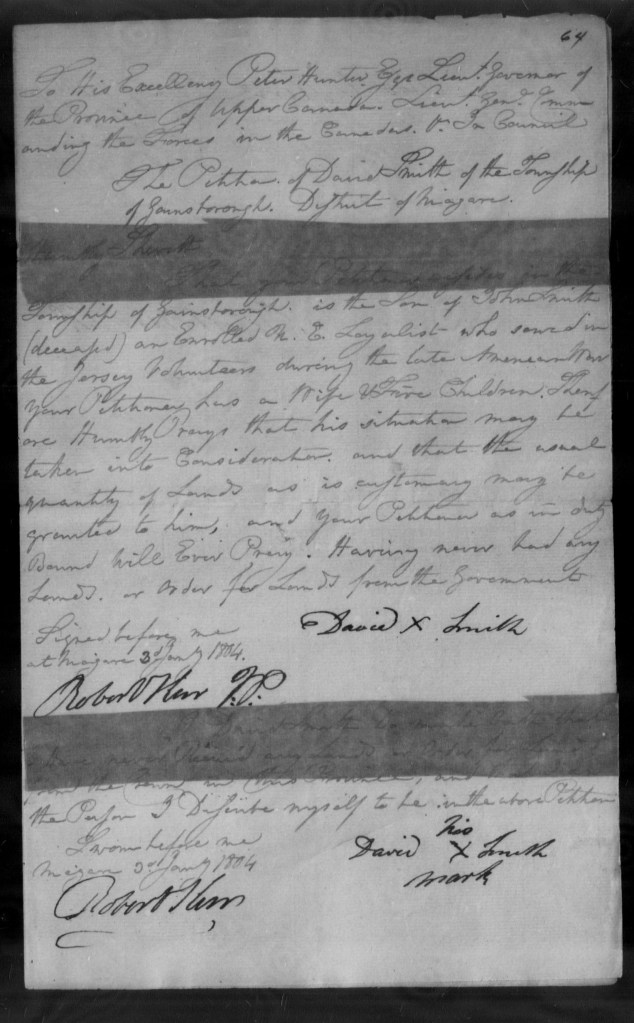 64
To His Excellency Peter Hunter Esqr Lieut. Governor of
the Province of Upper Canada. Lieut. Genl. Comm
anding the Forces in the Canadas. &c In Council
The Petition of David Smith of the Township
of Gainsborough. District of Niagara.
Humbly Sheweth
That your Petitioner resides in the
Township of Gainsborough. is the Son of John Smith
(deceased) an Enrolled U. E. Loyalist who served in
the Jersey Volunteers during the late American War
your Petitioner has a Wife & Five Children. Theref
ore Humbly Prays that his situation may be
taken into Consideration. and that the usual
quantity of Lands as is customary may be
granted to him, and your Petitioner as in duty
Bound Will Ever Pray. Having never had any
Lands. or Order for Lands from the Government
Signed before me
David X Smith
at Niagara 3d Jany 1804.
Robert Kerr J.P.
I David Smith do make Oath that
I have never Received any Lands or Order for Lands
from the Crown in this Province, and
the Person I Describe myself to be in the above Petition
Sworn before me
Niagara 3d Jany 1804
his
David X Smith
mark
Robert Kerr